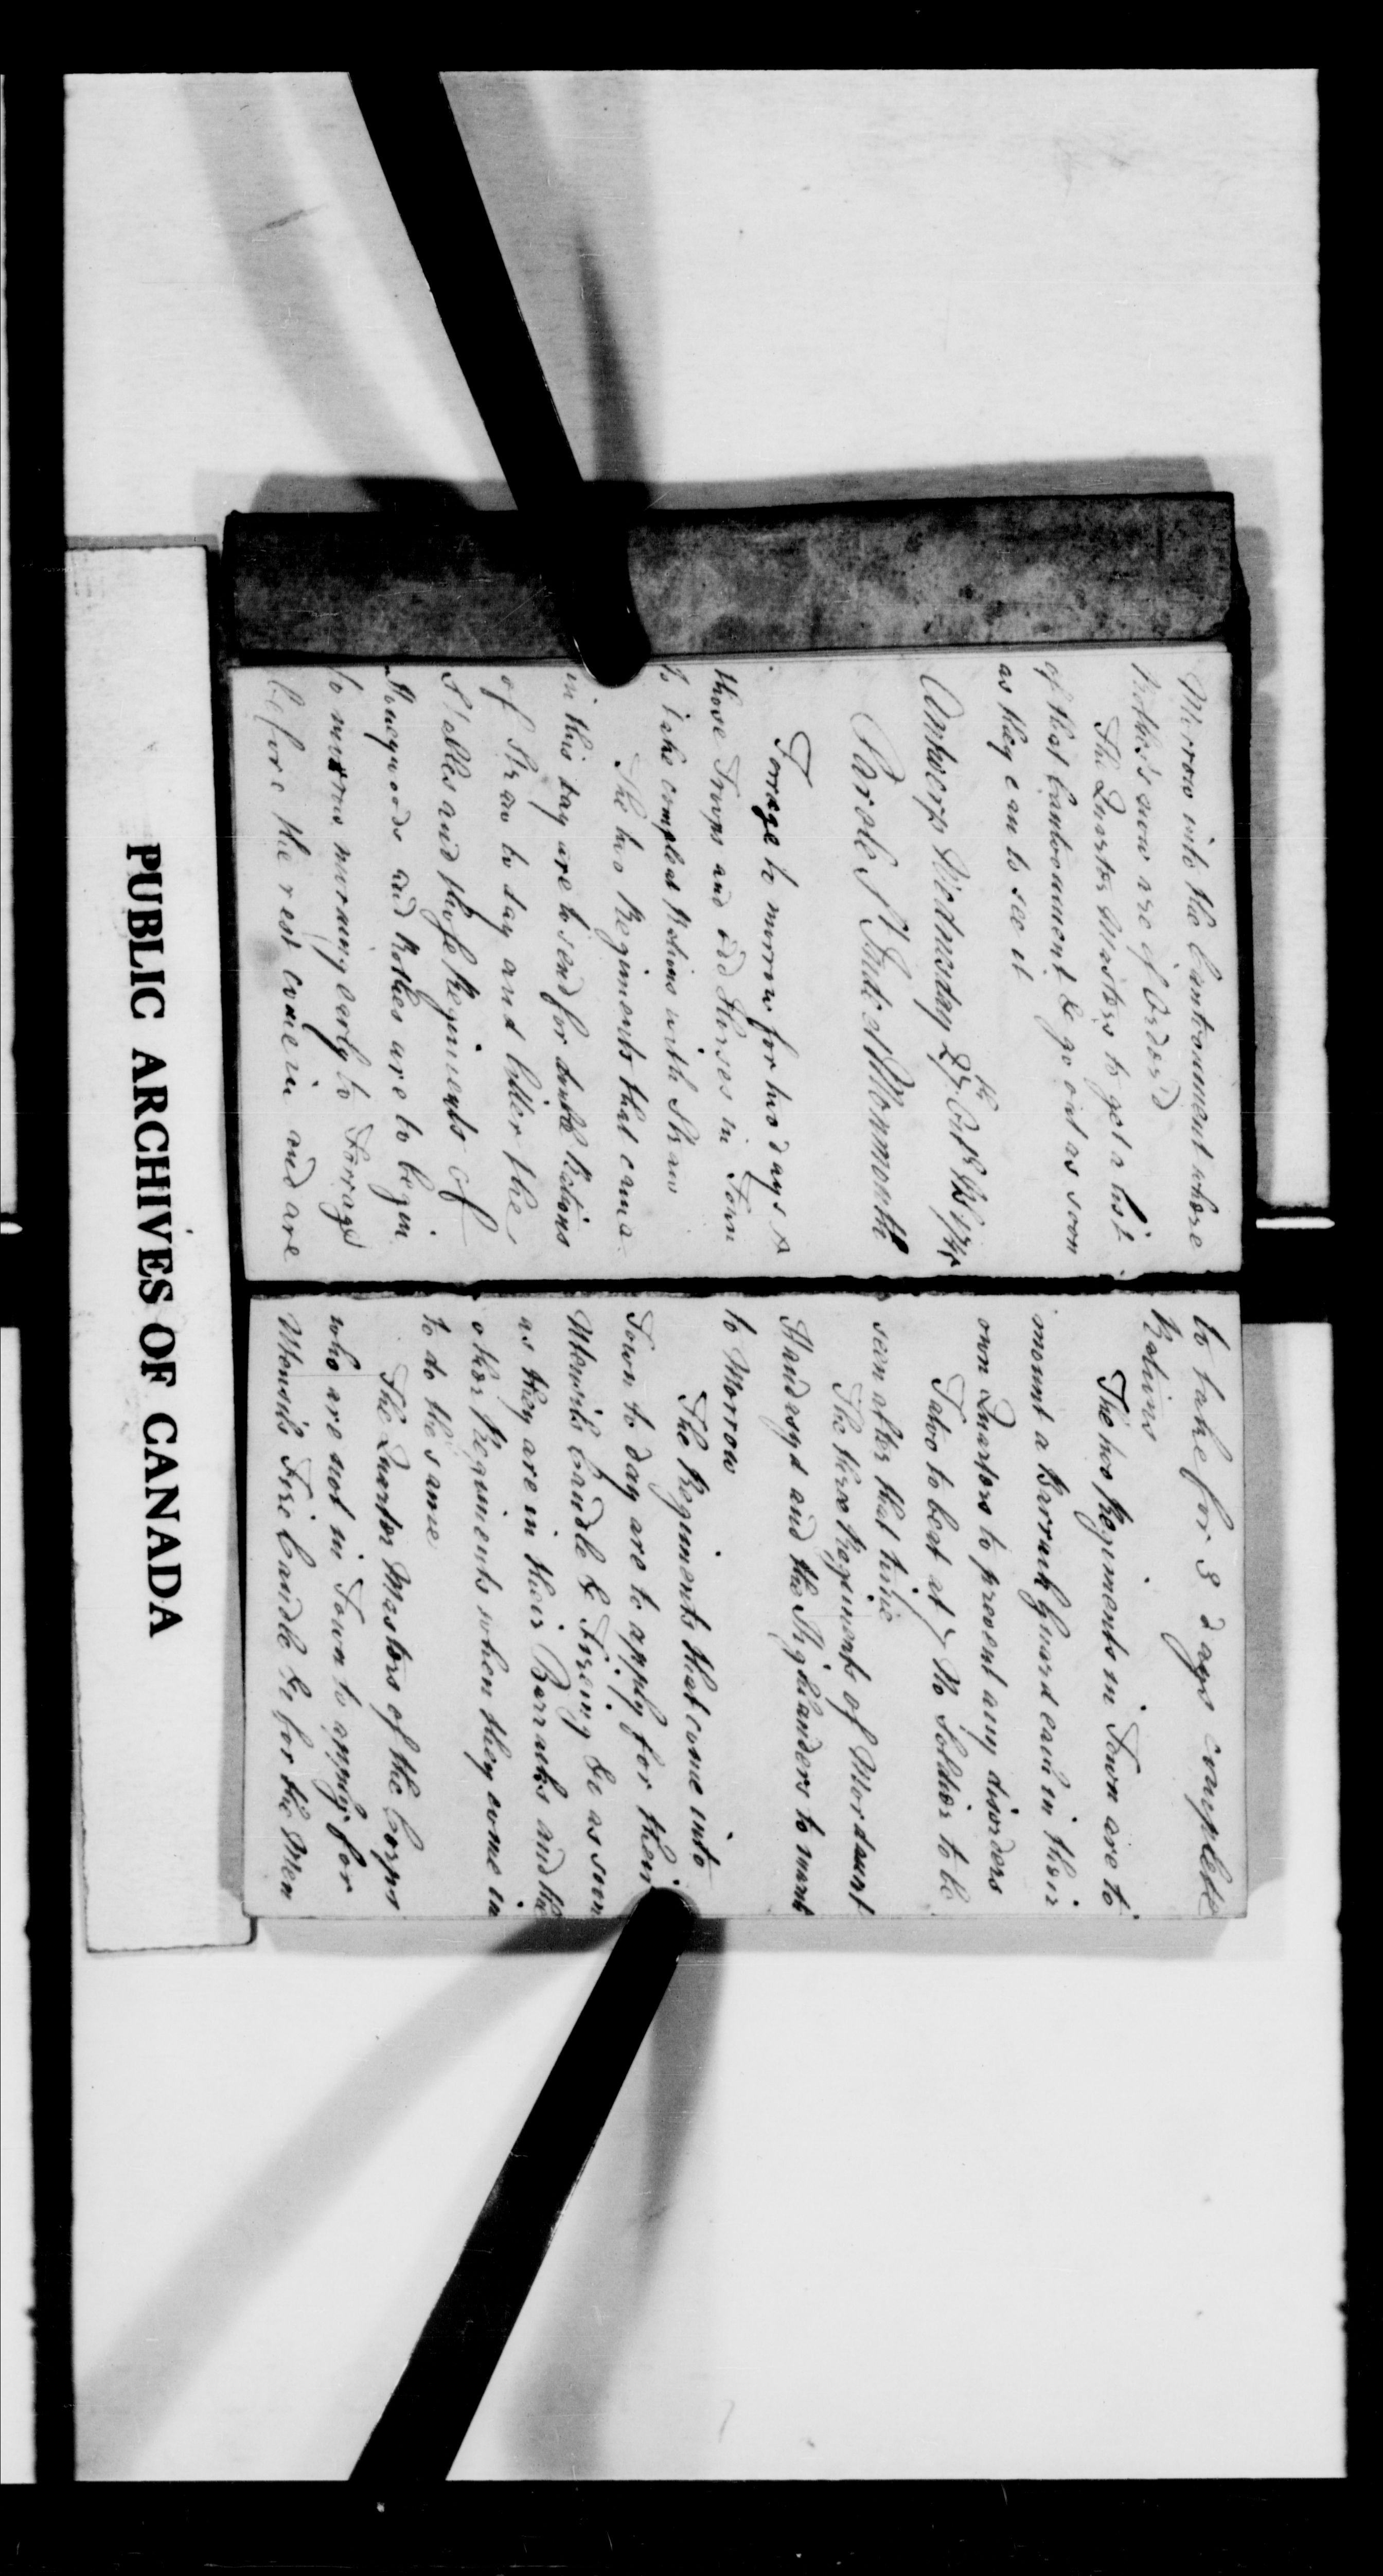 Morrow into the Cantonment where
Rothes's now are if Order'd
The Quarter Masters to get a list
of that Cantonment & go out as soon
as they can to see it
Antwerp Wednesday 27th Octr 1748
Parole St Jude et Monmouth
Forrage to morrow for two days
those Troops and Horses in Town
to take compleat Rations with Straw
The two Regiments that came
in this day are to send for double Rations
of Straw to day and litter the
Stables and those Regiments of
Honeywoods and Rothes are to begin
to morrow morning early to Forrage
before the rest come in and are
to take for 3 days compleat
Rations
The two Regiments in Town are to
mount a Barrack Guard each in their
own Quarters to prevent any disorders
Tatoo to beat at 7 No Soldier to be
seen after that time
The three Regiments of Mordaunt
Handasyd and the Highlanders to march
to Morrow
The Regiments that come into
Town to day are to apply for their
Utensils Candle & Fireing &c as soon
as they are in their Barracks and the
other Regiments when they come in
to do the same
The Quarter Masters of the Corps
who are not in Town to apply for
Utensils Fire Candle &c for the Men
PUBLIC ARCHIVES OF CANADA